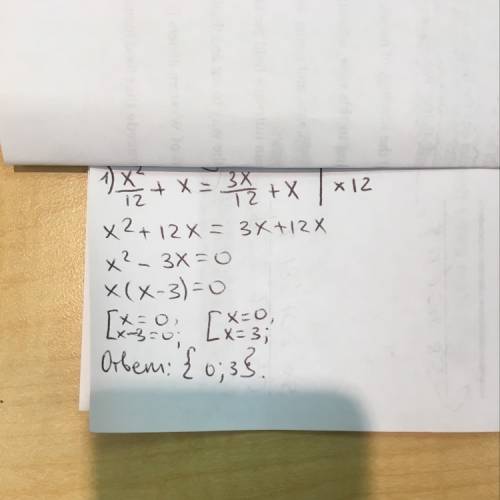 1) x²/12 + x = 3x/12 + x | ×12
x² + 12x = 3x + 12x
x² - 3x = 0
x(x-3) = 0
[x=0, x-3=0; [x=0, x=3;
Ответ: {0;3}.